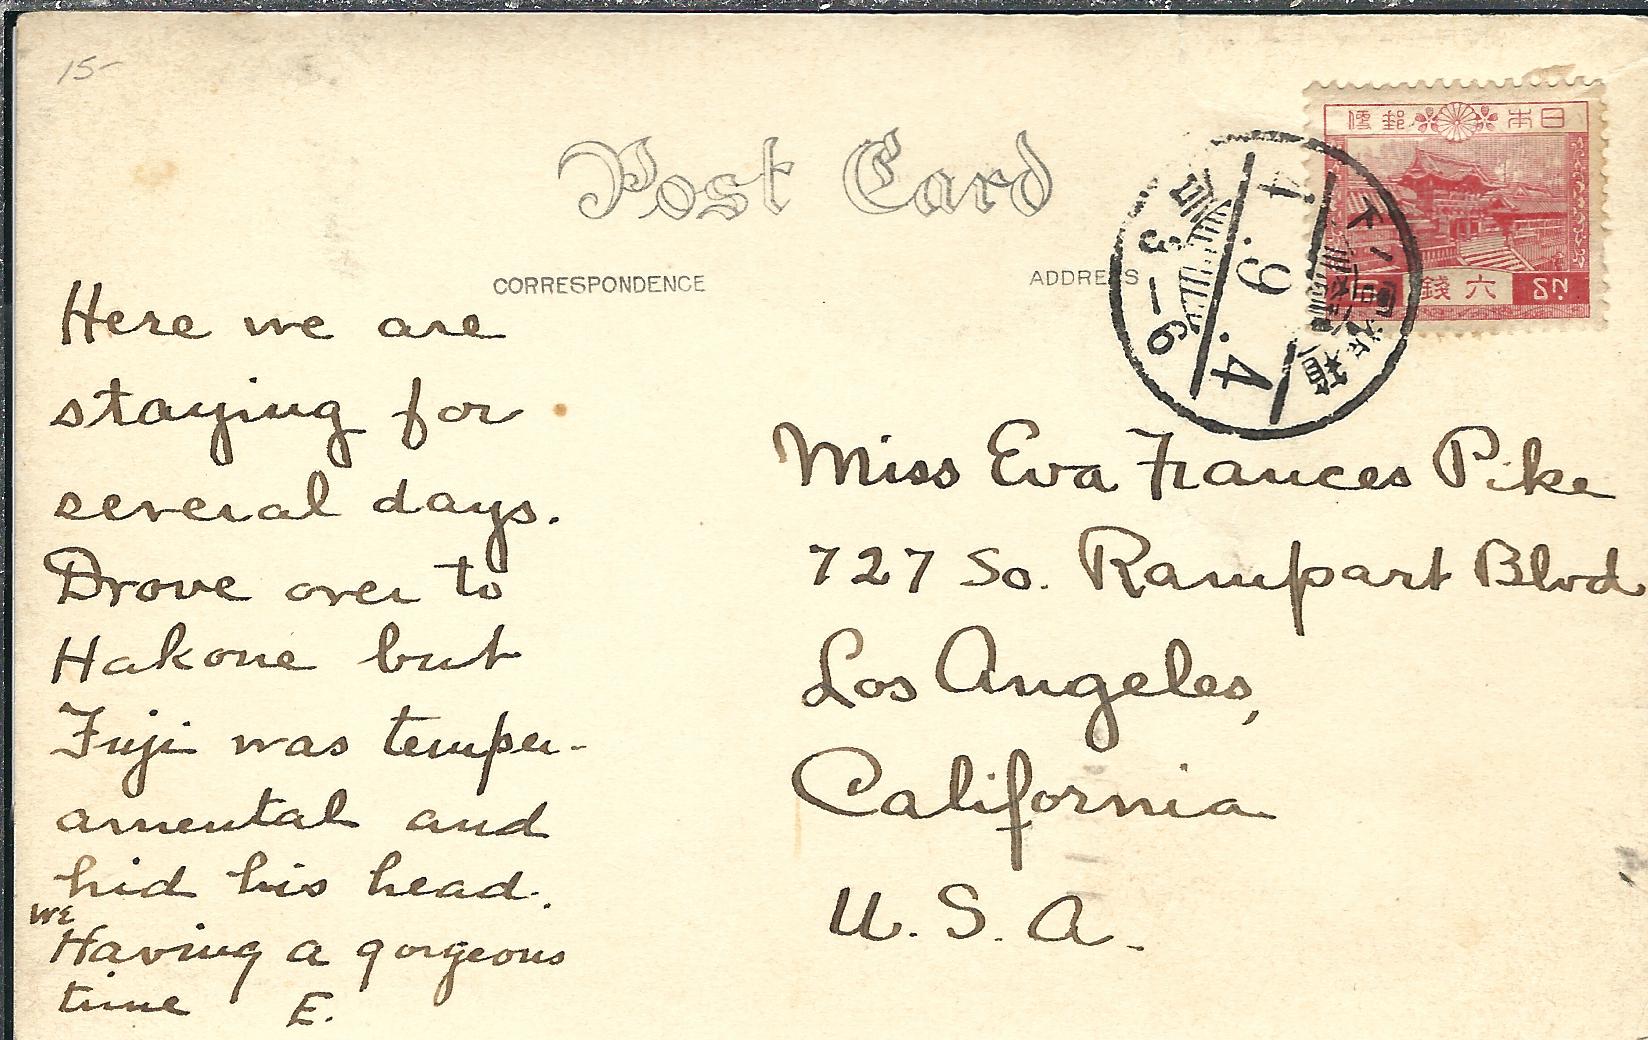 15-
Post Card
CORRESPONDENCE
ADDRESS
日本郵便
六錢
6 SN.
4.9.4
3-6
Here we are
staying for
several days.
Drove over to
Hakone but
Fuji was temper-
amental and
hid his head.
we
Having a gorgeous
time E.
Miss Eva Frances Pike
727 So. Rampart Blvd
Los Angeles,
California
U.S.A.